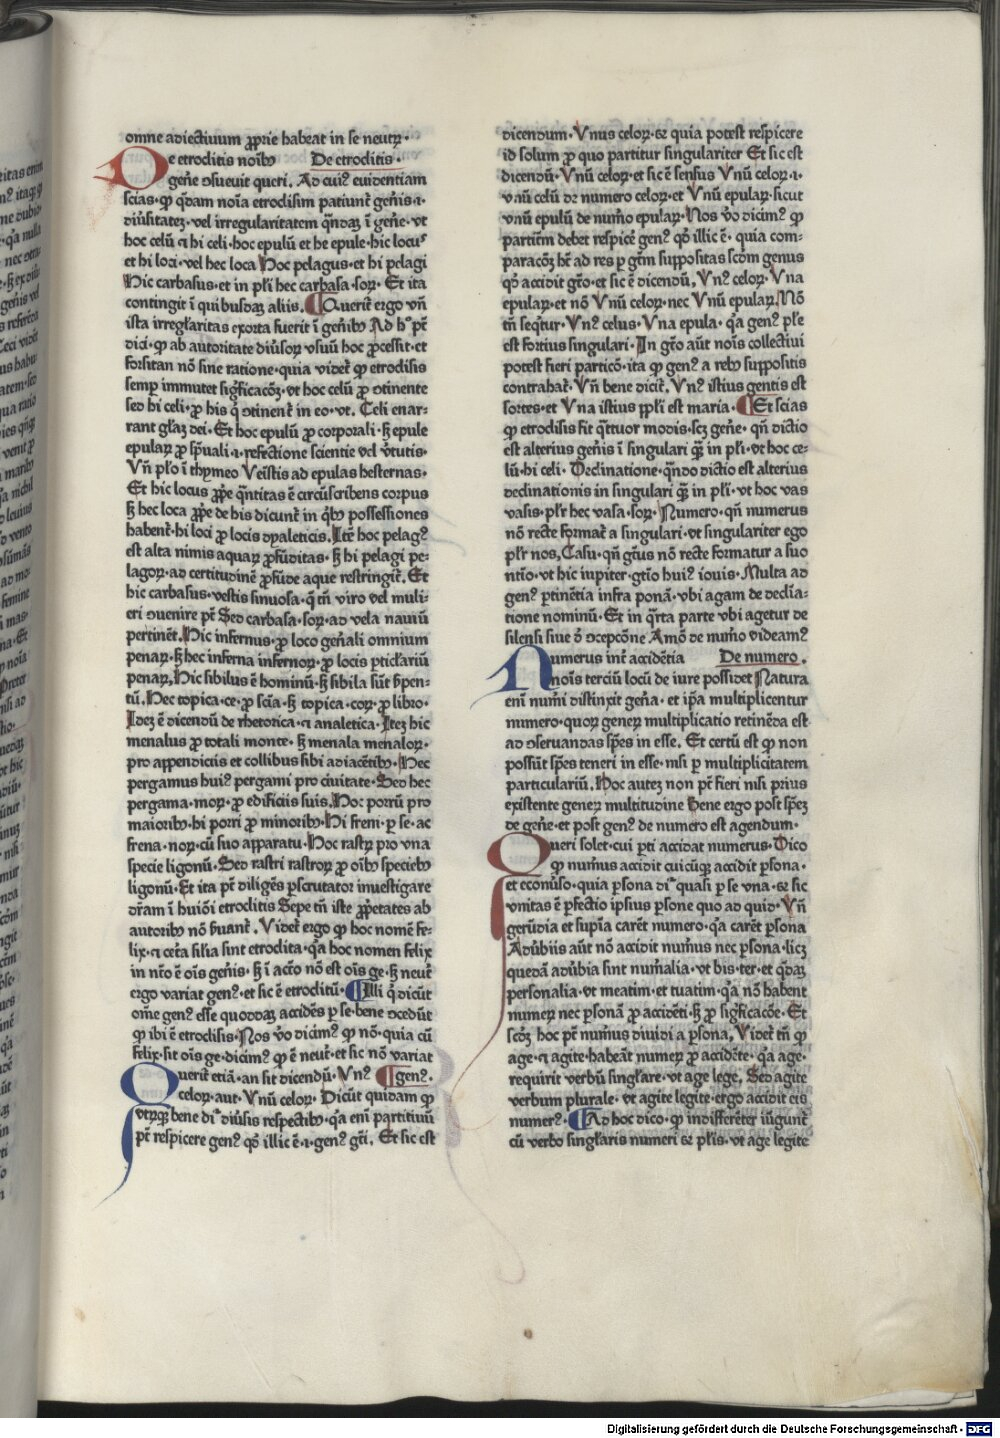 omne adiectiuum ꝓprie habeat in se neutꝝ·
De etroditis noībꝫ De etroditis·
geñe ɔsueuit queri. Ad cuiꝰ euidentiam
scias· ꝙ qͩdam noīa etrodisim patiunt᷑ geñis·ı·
diũsitateꝫ· vel irregularitatem qñdaꝫ ī geñe· vt
hoc celū ⁊ hi celi· hoc epulū et he epule· hic locuˢ
et hi loci· vel hec loca Hoc pelagus· et hi pelagi
Hic carbasus· et in pl̄i hec carbasa· soꝝ· Et ita
contingit ī quibusdaꝫ aliis. Querit᷑ ergo vñ
ista irregl̄aritas exorta fuerit ī geñibꝫ Ad hº pt̄
dici· ꝙ ab autoritate diũsoꝝ vsuū hoc ꝓcessit· et
forsitan nō sine ratione· quia videt᷑ ꝙ etrodisis
semꝑ immutet sigͥficacōꝫ· vt hoc celū ꝓ ɔtinente
sed hi celi· ꝓ his q̇ ɔtinent᷑ in eo· vt. Celi enar-
rant gl̄aꝫ dei· Et hoc epulū ꝓ corporali· ꝫ epule
epulaꝝ ꝓ sp̄uali·ı· refectione scientie vel v̓tutis·
Vñ pl̓o ī thymeo Veistis ad epulas hesternas·
Et hic locus ꝓpͤe qͣntitas ē circūscribens corpus
ꝫ hec loca ꝓpͤe de his dicunt᷑ in qͥbꝫ possessiones
habent᷑· hi loci ꝓ locis dyaleticis. Itē hoc pelagꝰ
est alta nimis aquaꝝ ꝓfūditas· ꝫ hi pelagi pe-
lagoꝝ· ad certitudinē ꝓfūde aque restringit᷑. Et
hic carbasus· vestis sinuosa· q̄ tñ viro vel muli-
eri ɔuenire pt̄ Sed carbasa· soꝝ· ad vela nauiū
pertinēt. Hic infernus· ꝓ loco geñali omnium
penaꝝ· ꝫ hec inferna infernoꝝ· ꝓ locis ꝑticl̄ariū
penaꝝ. Hic sibilus ē hominū· ꝫ sibila sūt s̓pen-
tū. Hec topica· ce· ꝓ scīa· ꝫ topica· coꝝ· ꝓ libro·
Ideꝫ ē dicendū de rhetorica· ⁊ analetica· Iteꝫ hic
menalus ꝓ totali monte· ꝫ menala menaloꝝ·
pro appendiciis et collibus sibi adiacētibꝫ· Hec
pergamus huiꝰ pergami pro ciuitate· Sed hec
pergama· moꝝ· ꝓ edificiis suis. Hoc porrū pro
maioribꝫ· hi porri ꝓ minoribꝫ· Hi freni· ꝑ se· ac
frena· noꝝ· cū suo apparatu· Hoc rastꝝ pro vna
specie ligonū· Sed rastri rastroꝝ ꝓ oībꝫ speciebꝫ
ligonū· Et ita pt̄ diligēs ꝑscrutator inuestigare
dr̄am ī huiōi etroditis Sepe tñ iste ꝓpͤetates ab
autoribꝫ nō s̓uant᷑. Videt᷑ ergo ꝙ hoc nomē fe-
lix· ⁊ cet̓a silia sint etrodita· qͣa hoc nomen felix
in nt̄o ē oīs geñis· ꝫ ī act̄o nō est oīs ge· ꝫ neut᷑
ergo variat genꝰ· et sic ē etroditū· Illi q̇ dicūt
om̄e genꝰ esse quoddaꝫ accidēs ꝑ se· bene ɔcedūt
ꝙ ibi ē etrodisis· Nos v̓o dicimꝰ ꝙ nō· quia cū
felix· sit oīs ge· dicimꝰ ꝙ ē neut᷑· et sic nō variat
Querit᷑ etiā· an sit dicendū· Vnꝰ genꝰ·
celoꝝ· aut· Vnū celoꝝ· Dicūt quidam ꝙ
vtꝝqꝫ bene di᷑ diũsis respectibꝫ· qͣa eni partitiuū
pt̄ respicere genꝰ qͦ illic ē·ı· genꝰ gt̄i. Et sic est
dicendum· Vnus celoꝝ· ⁊ quia potest respicere
id solum ꝓ quo partitur singulariter Et sic est
dicendū· Vnū celoꝝ· et sic ē sensus Vnū celoꝝ·ı·
vnū celū de numero celoꝝ· et Vnū epulaꝝ· sicut
vnū epulū de num̓o epulaꝝ· Nos v̓o dicimꝰ ꝙ
partitm̄ debet respice᷑ genꝰ qͦ illic ē· quia com-
paracōꝫ ht̄ ad res ꝑ gt̄m suppositas scd̄m genus
qͦ accidit gt̄o· et sic ē dicendū. Vnꝰ celoꝝ· Vna
epulaꝝ· et nō Vnū celoꝝ· nec Vnū epulaꝝ. Nō
tñ seqͥtur· Vnꝰ celus· Vna epula· qͣa genꝰ pl̄e
est fortius singulari· In gt̄o aūt noīs collectiui
potest fieri particō· ita ꝙ genꝰ a rebꝫ suppositis
contrahat᷑· Vñ bene dicit᷑. Vnꝰ istius gentis est
sortes· et Vna istius ppl̄i est maria· Et scias
ꝙ etrodisis sit qͣttuor modis· scꝫ geñe· qñ dictio
est alterius geñis ī singulari qͣꝫ in pl̄i· vt hoc ce-
lū· hi celi· Declinatione· qñdo dictio est alterius
declinationis in singulari qͣꝫ in pl̄i· vt hoc vas
vasis· pl̓r hec vasa· soꝝ· Numero· qñ numerus
nō recte format᷑ a singulari· vt singulariter ego
pl̓r nos, Casu· qñ gt̄us nō recte formatur a suo
nt̄io· vt hic iupiter· gt̄io huiꝰ iouis· Multa ad
genꝰ ꝑtinētia infra ponā· vbi agam de declīa-
tione nominū· Et in qͣrta parte vbi agetur de
silensi siue ɔ̓ ɔcepcōne Amō de num̓o videamꝰ
Numerus int̓ accidētia De numero.
noīs terciū locū de iure possidet Natura
enī num̓i distinxit geña· et ip̄a multiplicentur
numero· quoꝝ geneꝝ multiplicatio retinēda est
ad ɔseruandas sp̄es in esse. Et certū est ꝙ non
possūt sp̄es teneri in esse· nisi ꝑ multiplicitatem
particulariū. Hoc auteꝫ non pt̄ fieri nisi prius
existente geneꝝ multitudine Bene ergo post sp̄eꝫ
de geñe· et post genꝰ de numero est agendum·
Queri solet· cui ꝑti accidat numerus· Dico
ꝙ num̓us accidit cuicūqꝫ accidit ꝑsona·
et econũso· quia ꝑsona di᷑ quasi ꝑ se vna· ⁊ sic
vnitas ē ꝑfectio ipsius ꝑsone quo ad quid· Vñ
gerūdia et supīa carēt numero· qͣa carēt ꝑsona
Adũbiis aūt nō accidit num̓us nec ꝑsona· licꝫ
quedā adũbia sint num̓alia· vt bis· ter· et qͩdaꝫ
personalia· vt meatim· et tuatim· qͣa nō habent
numeꝝ nec ꝑsonā ꝓ accidēti· ꝫ ꝓ sigͥficacōe· Et
scd̄ꝫ hoc pt̄ num̓us diuidi a ꝑsona, Videt᷑ tñ ꝙ
age· ⁊ agite· habeāt numeꝝ ꝓ accidēte· qͣa age·
requirit verbū singl̄are· vt age lege. Sed agite
verbum plurale· vt agite legite· ergo accidit eis
numerꝰ· Ad hoc dico· ꝙ indifferēter iũgunt᷑
cū verbo singl̄aris numeri ⁊ pl̄is· vt age legite
Digitalisierung gefördert durch die Deutsche Forschungsgemeinschaft · DFG